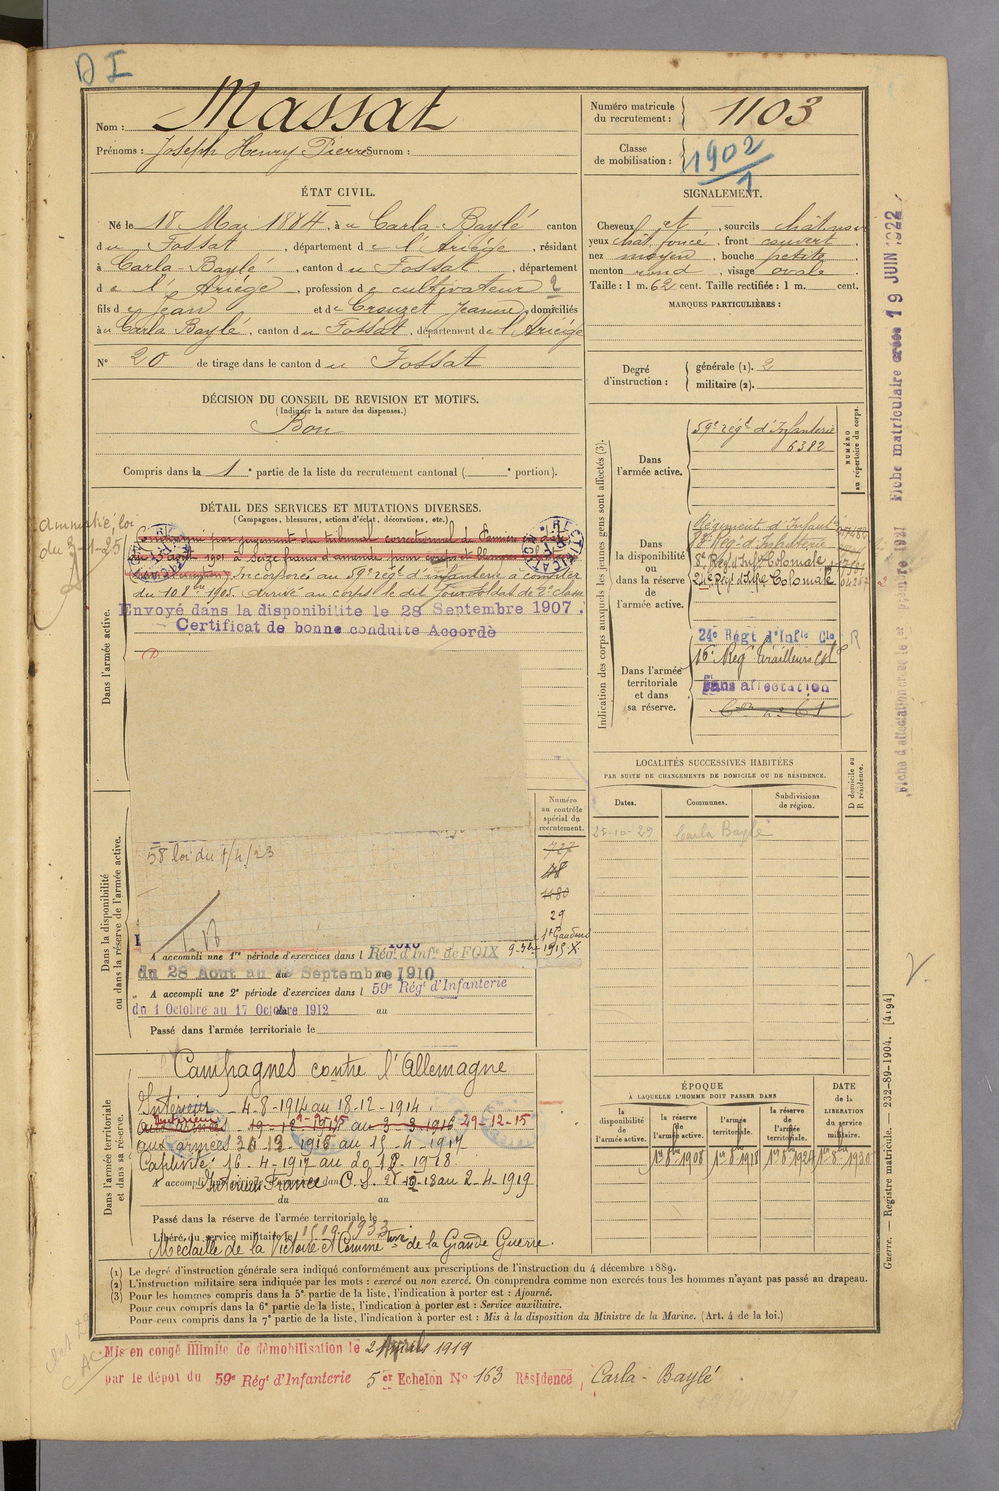 D I
Nom : Massat
Prénoms : Joseph Henry Pierre Surnom :
Numéro matricule du recrutement : 1103
Classe de mobilisation : 1902/1
ÉTAT CIVIL.
Né le 18 Mai 1884, à Carla-Baylé canton
du Fossat, département de l'Ariège, résidant
à Carla-Baylé, canton du Fossat, département
de l'Ariège, profession de cultivateur 2
fils de Jean et de Crouzet Jeanne, domiciliés
à Carla Baylé, canton du Fossat, département de l'Ariège
N° 20 de tirage dans le canton du Fossat
SIGNALEMENT.
Cheveux et, sourcils châtains
yeux chât. foncé, front couvert,
nez moyen, bouche petite,
menton rond, visage ovale
Taille : 1 m. 62 cent. Taille rectifiée : 1 m. cent.
MARQUES PARTICULIÈRES :
Degré d'instruction : générale (1). 2
militaire (2).
DÉCISION DU CONSEIL DE REVISION ET MOTIFS.
(Indiquer la nature des dispenses.)
Bon
Compris dans la 1e partie de la liste du recrutement cantonal ( e portion).
DÉTAIL DES SERVICES ET MUTATIONS DIVERSES.
(Campagnes, blessures, actions d'éclat, décorations, etc.)
amnistié, loi
du 3-1-25
par jugement du tribunal correctionnel de Pamiers
à seize francs d'amende pour coups et blessures
Incorporé au 59e rég.t d'infanterie à compter
du 10 8bre 1905. Arrivé au corps le dit jour soldat de 2e classe
Envoyé dans la disponibilité le 28 Septembre 1907.
Certificat de bonne conduite Accordé
Dans l'armée active.
58 loi du 1/4/23
Dans la disponibilité
ou dans la réserve de l'armée active.
A accompli une 1re période d'exercices dans l Rég.t d'Inf.ie de FOIX
du 28 Aout au Septembre 1910
A accompli une 2e période d'exercices dans l 59e Rég.t d'Infanterie
du 1 Octobre au 17 Octobre 1912 au
Passé dans l'armée territoriale le
Numéro au contrôle spécial du recrutement.
727
48
1180
29
Dans l'armée territoriale
et dans sa réserve.
Campagnes contre l'Allemagne
Intérieur - 4-8-1914 au 18-12-1914.
Intérieur
aux armées - 19-12-1914 au 3-3-1916 29-12-15
aux armées 30 12 1915 au 15-4-1917
Captivité 16-4-1917 au 20 12-1918.
Intérieur France C.S. 21 12 18 au 2-4-1919
du au
Passé dans la réserve de l'armée territoriale le
Libéré du service militaire le 15 10 1933
Médaille de la Victoire et Comme.tive de la Grande Guerre.
Indication des corps auxquels les jeunes gens sont affectés (3).
Dans l'armée active.
59e rég.t d'Infanterie
6382
NUMÉRO au répertoire du corps.
Dans la disponibilité ou dans la réserve de l'armée active.
Régiment d'Infant
Rég. d'Infanterie
8e Rég. d'Inf. Coloniale
24e Rég. d'Inf. Coloniale
Dans l'armée territoriale et dans sa réserve.
24e Régt d'Infie Cle R
16e Reg. tirailleurs Col
Sans affectation
LOCALITÉS SUCCESSIVES HABITÉES
PAR SUITE DE CHANGEMENTS DE DOMICILE OU DE RÉSIDENCE.
Dates. Communes. Subdivisions de région. D domicile ou R résidence.
25-10-29 Carla Baylé
ÉPOQUE
À LAQUELLE L'HOMME DOIT PASSER DANS
la disponibilité de l'armée active. la réserve de l'armée active. l'armée territoriale. la réserve de l'armée territoriale.
DATE de la LIBERATION du service militaire.
1er 8bre 1908 1er 8bre 1918 1er 8bre 1924 1er 8bre 1930
(1) Le degré d'instruction générale sera indiqué conformément aux prescriptions de l'instruction du 4 décembre 1889.
(2) L'instruction militaire sera indiquée par les mots : exercé ou non exercé. On comprendra comme non exercés tous les hommes n'ayant pas passé au drapeau.
(3) Pour les hommes compris dans la 5e partie de la liste, l'indication à porter est : Ajourné.
Pour ceux compris dans la 6e partie de la liste, l'indication à porter est : Service auxiliaire.
Pour ceux compris dans la 7e partie de la liste, l'indication à porter est : Mis à la disposition du Ministre de la Marine. (Art. 4 de la loi.)
Mis en congé illimité de démobilisation le 2 Avril 1919
par le dépôt du 59e Régt d'Infanterie 5er Echelon No 163 Résidence, Carla-Baylé.
Fiche matriculaire créée 19 JUIN 1922
Guerre. — Registre matricule. — 232-89-1904. [4194]